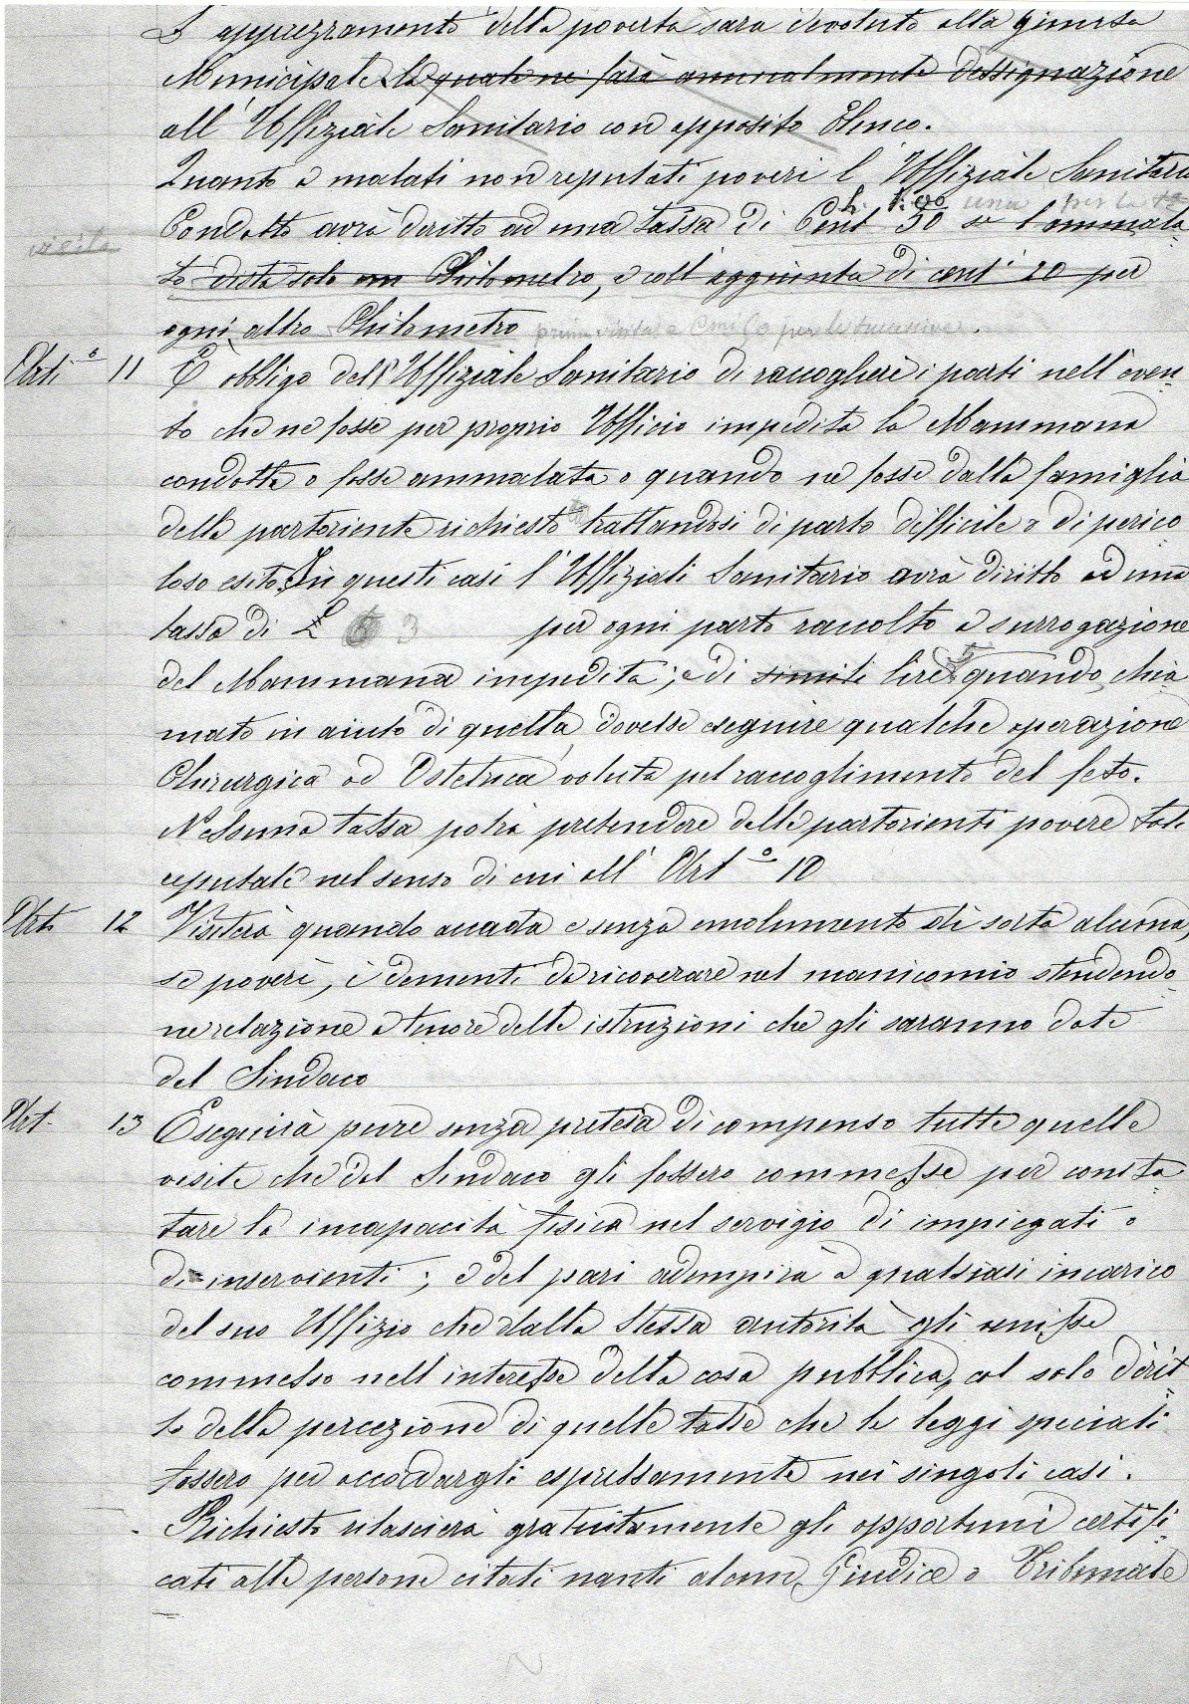 L'apprezzamento della povertà sarà devoluto alla Giunta
Municipale la quale ne farà annualmente dessignazione
all'Uffiziale Sanitario con apposito Elenco.
Quanto a malati non reputati poveri l'Uffiziale Sanitario
L. 1.00 una per la 1a
Condotto avrà diritto ad una tassa di Cent 50 se l'ammala
visita
to dista solo un Chilometro, e coll'aggiunta di cent 20 per
ogni altro Chilometro prima visita e Cmi 50 per le successive.
Arti° 11 È obbligo dell'Uffiziale Sanitario di raccogliere i parti nell'even
to che ne fosse per proprio Ufficio impedita la Mammana
condotta o fosse ammalata o quando ne fosse dalla famiglia
della partoriente richiesto trattandosi di parto difficile o di perico
loso esito. In questi casi l'Uffiziali Sanitario avrà diritto ad una
tassa di L 3 per ogni parto raccolto a surrogazione
del Mammana impedita; e di simili lire 5 quando chia
mato in aiuto di quella dovesse eseguire qualche operazione
Chirurgica od Ostetrica voluta pel raccoglimento del feto.
Nessuna tassa potrà pretendere dalle partorienti povere tali
reputate nel senso di cui all'Art° 10
Art. 12 Visiterà quando accada e senza emolumento di sorta alcuna,
se poveri, i dementi da ricoverare nel manicomio stendendo
ne relazione a tenore delle istruzioni che gli saranno date
dal Sindaco
Art. 13 Eseguirà pure senza pretesa di compenso tutte quelle
visite che dal Sindaco gli fossero commesse per consta
tare la incapacità fisica nel servigio di impiegati o
di inservienti; e del pari adempirà a qualsiasi incarico
del suo Uffizio che dalla stessa autorità gli venisse
commesso nell'interesse della cosa pubblica, col solo dirit
to della percezione di quelle tasse che le leggi speciali
fossero per accordargli espressamente nei singoli casi.
Richiesto rilascierà gratuitamente gli opportuni certifi
cati alle persone citati nanti alcun Giudice o Tribunale